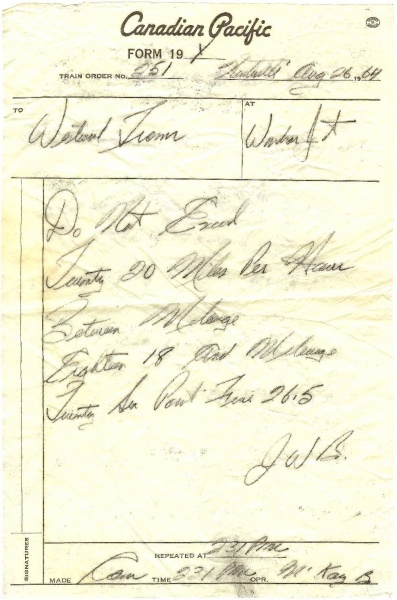 Canadian Pacific
FORM 19 Y
TRAIN ORDER No. 251 Aug 26, 1964
TO
AT
Westward Trains
Windsor Jct
Do Not Exceed
Twenty 20 Miles Per Hour
Between Mileage
Eighteen 18 And Mileage
Twenty Six Point Five 26.5
J W B.
SIGNATURES
REPEATED AT 231 PM
MADE Com TIME 231 PM OPR. McKay